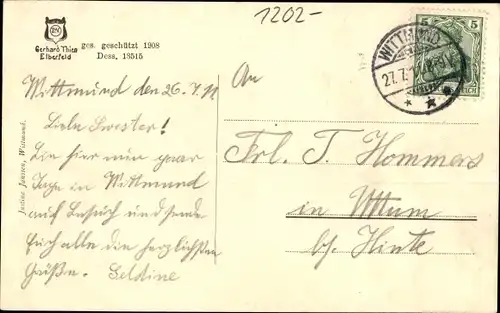 1202-
EV
Gerhard Thien
Elberfeld
ges. geschützt 1908
Dess. 18515
5 5
WITTMUND
27.7.
REICH
Wittmund den 26.7.11
Liebe Swester!
Bin hier ein paar
Tage in Wittmund
auf Besuch und sende
Euch alle die herzlichsten
Grüße. Geldine
An
Frl. T. Hommers
in Uttum
bz. Hinte
Justine Janssen, Wittmund.